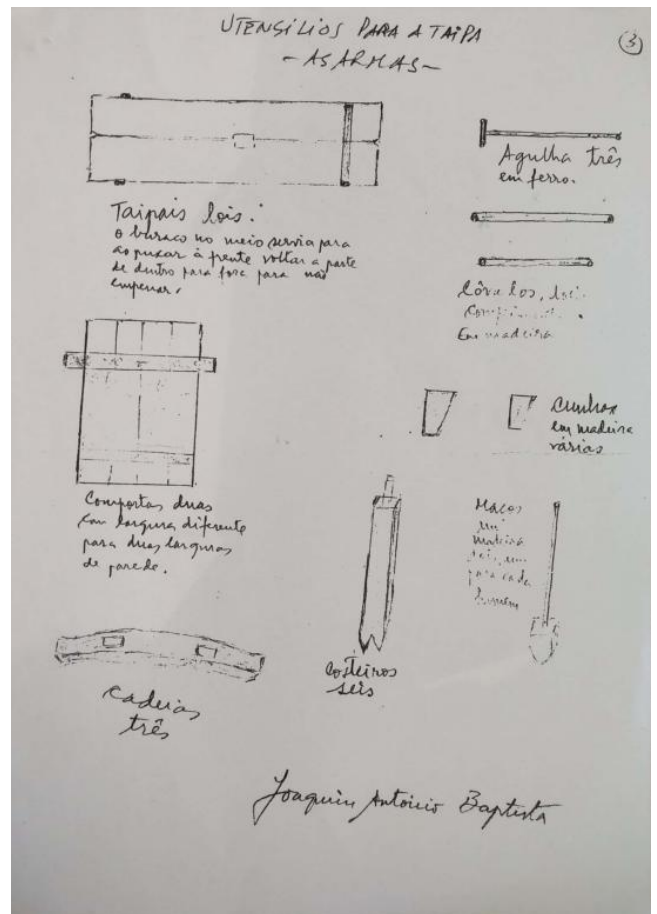 UTENSÍLIOS PARA A TAIPA
- AS ARMAS -
3
Taipais
o buraco no meio servia para
ao puxar à frente voltar a parte
de dentro para fora para não
empenar.
Agulha três
em ferro.
Em madeira
Cunhas
em madeira
várias
Comportas duas
com largura diferente
para duas larguras
de parede.
Costeiros
seis
Maços
madeira
um
para cada
homem
cadeias
três
Joaquim António Baptista